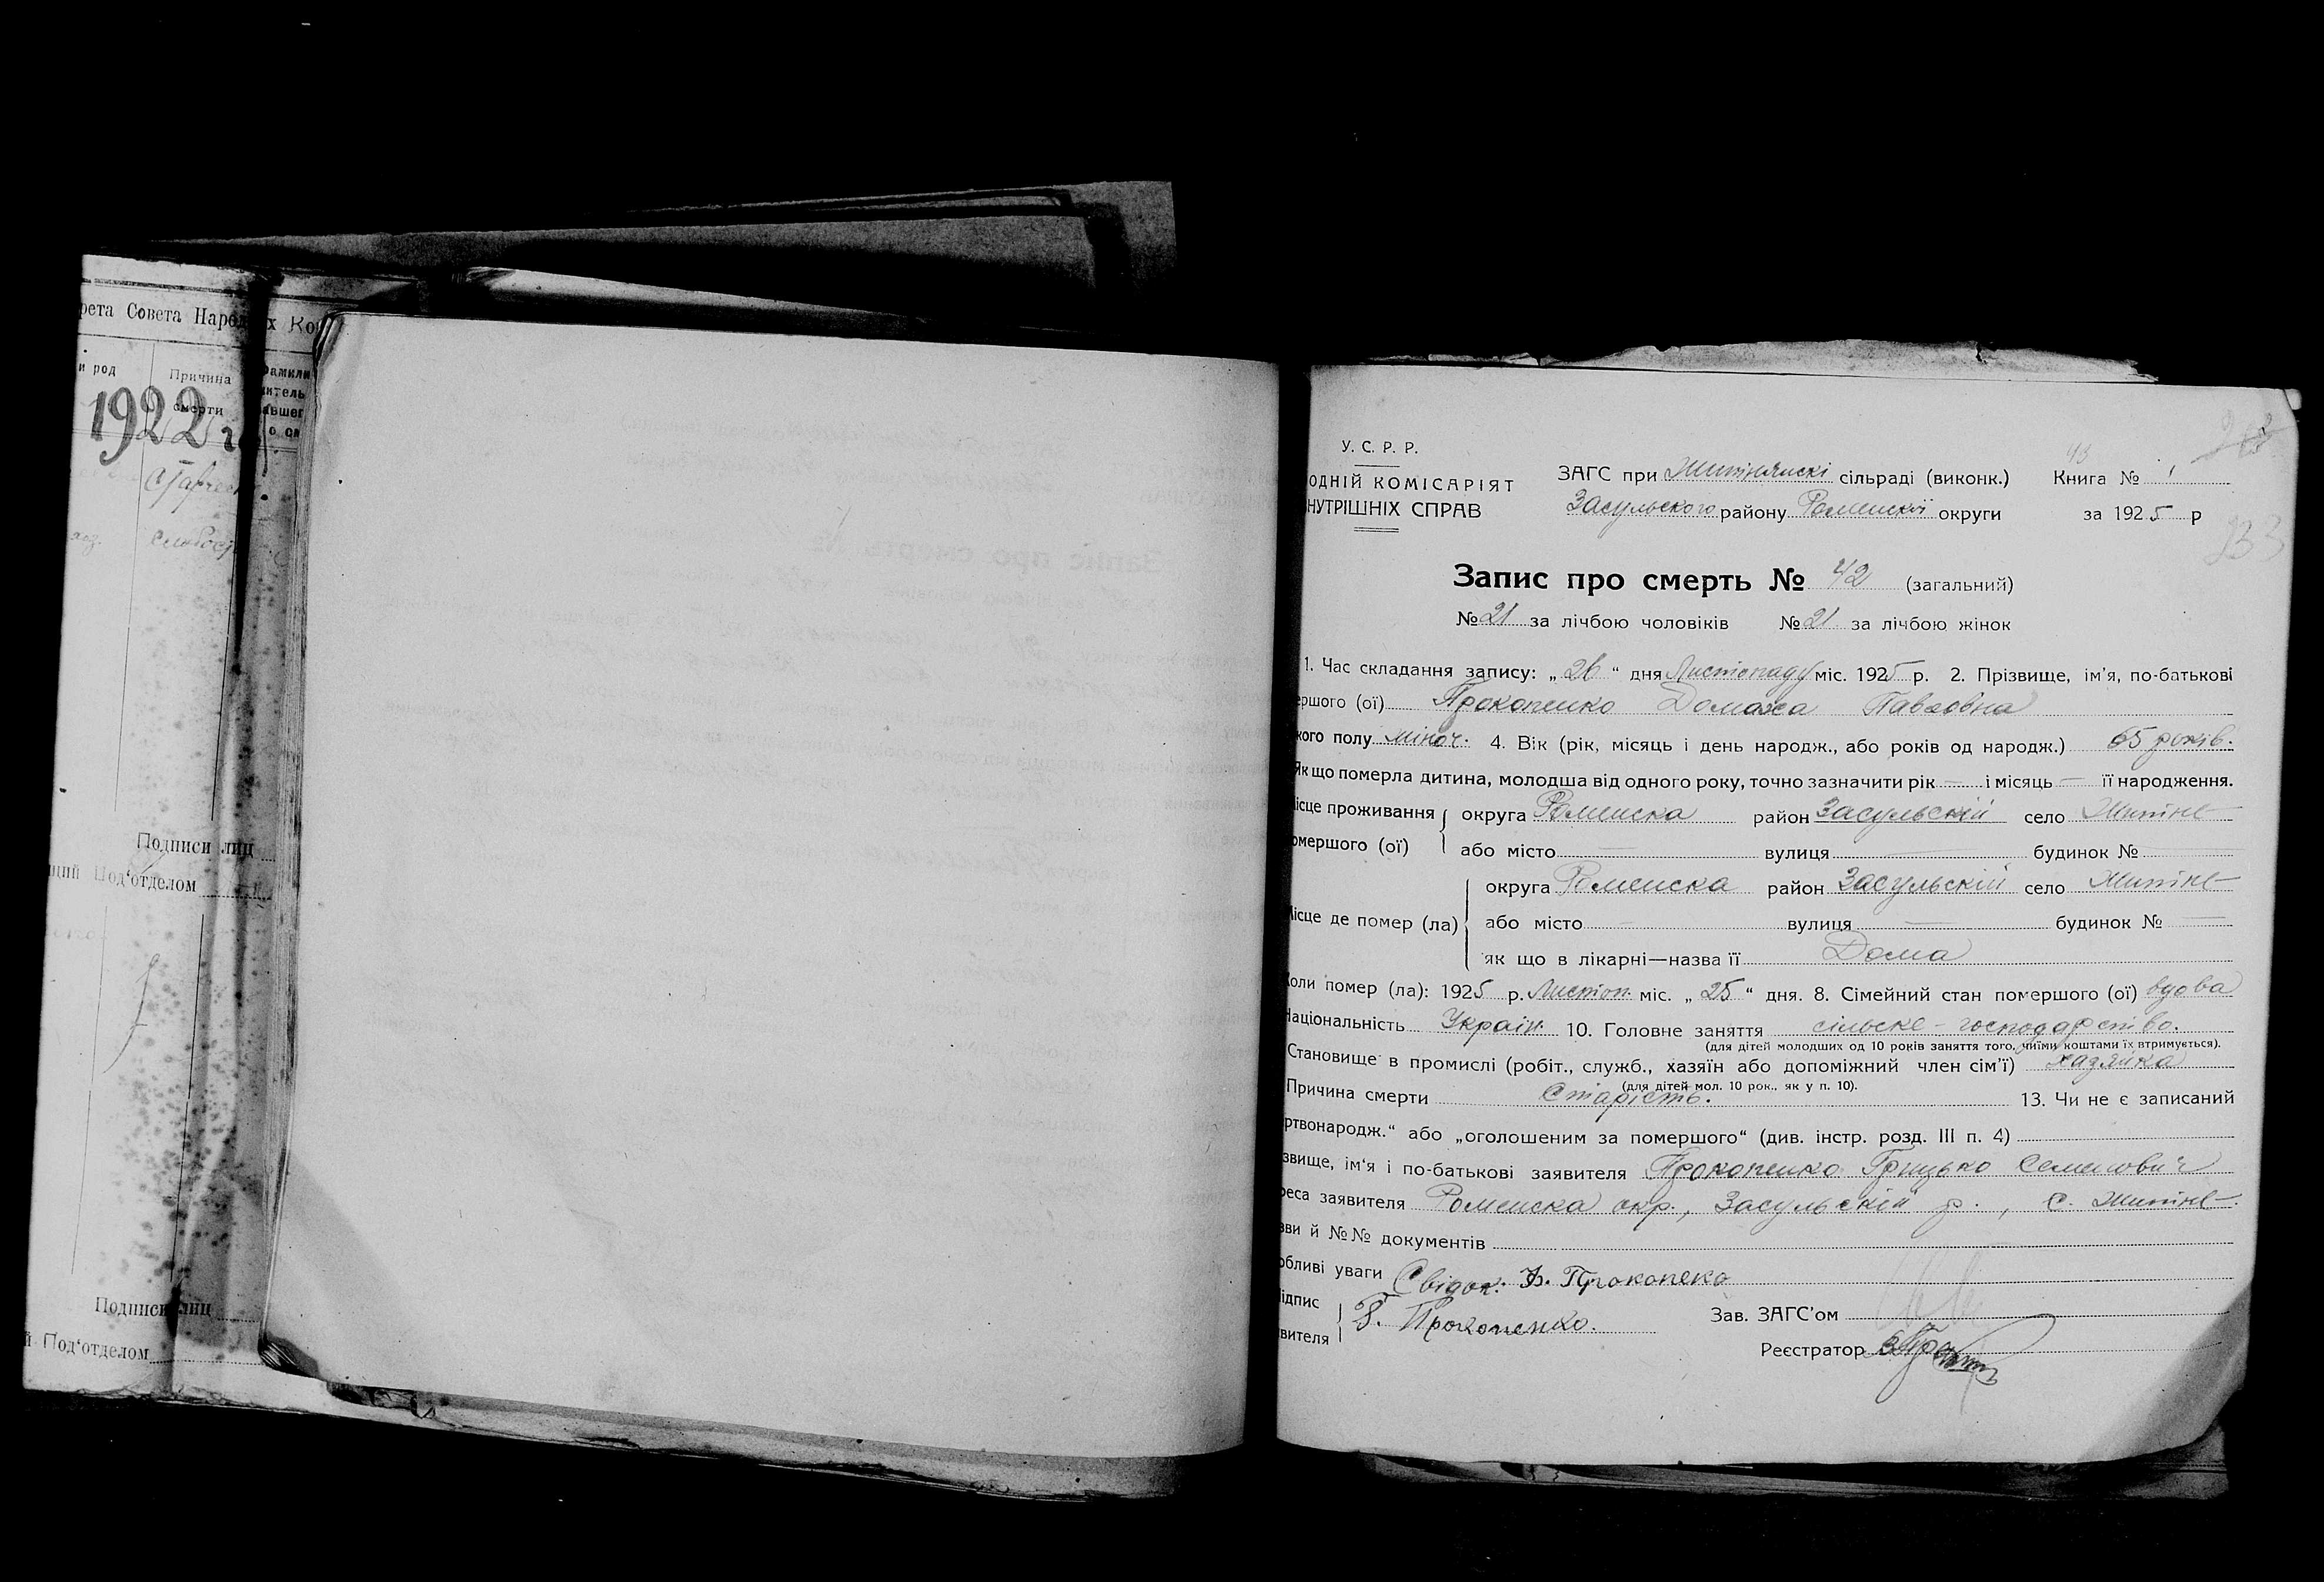 рета Совета Народ
х Ко
и род
Причина
смерти
1922 г
Подписи лиц
щий Под‘отделом
Подписи лиц
й Под‘отделом
У. С. Р. Р.
ОДНІЙ КОМІСАРІЯТ
НУТРІШНІХ СПРАВ
ЗАГС при Житнянскі сільраді (виконк.)
Засульского району Роменскої округи
Книга № 1
за 1925 р
233
Запис про смерть № 42 (загальний)
№ 21 за лічбою чоловіків № 21 за лічбою жінок
1. Час складання запису: „ 26 “ дня Листопаду міс. 1925 р. 2. Прізвище, ім’я, по-батькові
ершого (ої) Прокопенко Домаха Павловна
кого полу жіноч. 4. Вік (рік, місяць і день народж., або років од народж.) 65 років.
Як що померла дитина, молодша від одного року, точно зазначити рік — і місяць — її народження.
ісце проживання округа Роменска район Засульскій село Житне
омершого (ої) або місто — вулиця — будинок № —
округа Роменска район Засульскій село Житне
Місце де помер (ла) або місто — вулиця — будинок № —
як що в лікарні—назва її Дома
Коли помер (ла): 1925 р. Листоп. міс. „ 25 “ дня. 8. Сімейний стан помершого (ої) вдова
Національність Україн. 10. Головне заняття сільске-господарство.
(для дітей молодших од 10 років заняття того, чиїми коштами їх втримується).
Становище в промислі (робіт., служб., хазяїн або допоміжний член сім’ї) хазяйка
(для дітей мол. 10 рок., як у п. 10).
Причина смерти Старість. 13. Чи не є записаний
ртвонародж.“ або „оголошеним за помершого“ (див. інстр. розд. III п. 4)
звище, ім‘я і по-батькові заявителя Прокопенко Грицько Семенович
реса заявителя Роменска окр., Засульскій р., с. Житне
зви й №№ документів
обливі уваги Свідок: Ф. Прокопеко
ідпис Г. Прокопенко.
вителя
Зав. ЗАГС’ом
Реєстратор